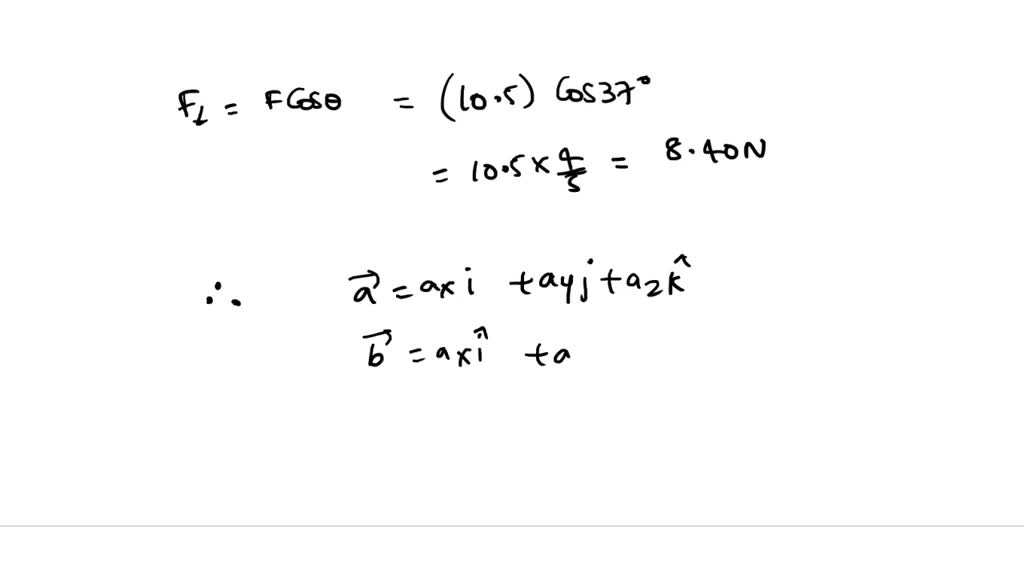 F⊥ = F Cosθ = (10.5) Cos37°
= 10.5 × 4/5 = 8.40N
∴ a⃗ = axi + ayj + azk̂
b⃗ = axî + a